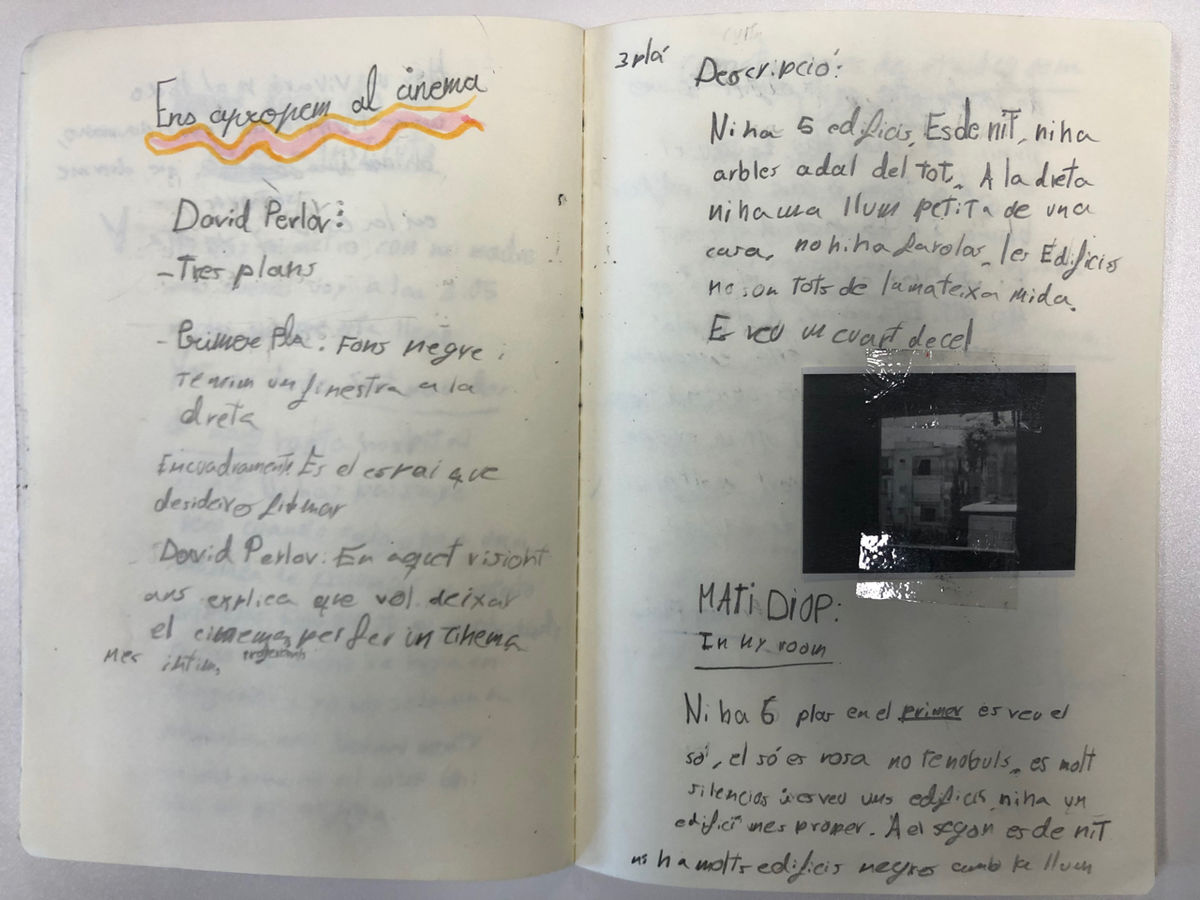 Ens apropem al cinema
David Perlov:
- Tres plans
- Primere Pla: Fons negre i
tenim un finestra a la
dreta
Encuadrament: Es el espai que
desideixes filmar
David Perlov: En aquet visiont
ans explica que vol deixar
el cinema professional per fer un cinema
mes intim,
3 plá
Descripció:
Ni ha 5 edificis, Es de nit, ni ha
arbles a dal del tot. A la dreta
ni ha una llum petita de una
casa, no hi ha farolas, les Edificis
no son tots de la mateixa mida.
Es veu un cuart de cel
MATi DiOP:
In My room
Ni ha 6 plas en el primer es veu el
só, el só es rosa no te nobuls, es molt
silencios i es veu uns edificis, ni ha un
edifici mes proper. A el segon es de nit
ni ha molts edificis negres amb la llum